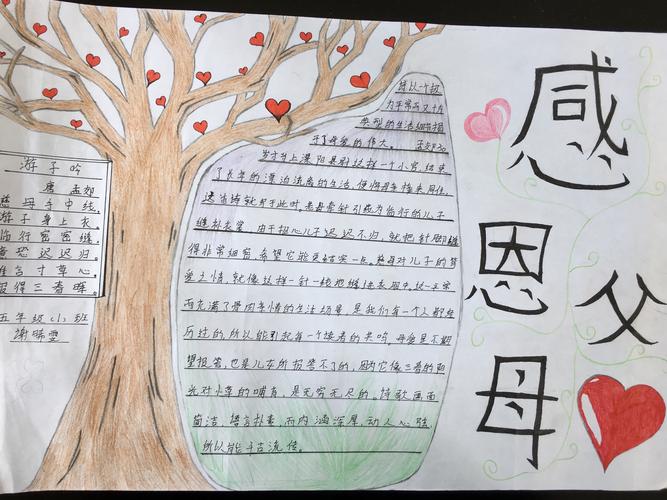 游子吟
唐 孟郊
慈母手中线,
游子身上衣。
临行密密缝,
意恐迟迟归。
谁言寸草心,
报得三春晖。
五年级(1)班
谢晞雯
诗以一个极
为平常而又十分
典型的生活细节揭
示了母爱的伟大。孟郊50
岁才当上溧阳县尉这样一个小官,结束
了长年的漂泊流离的生活,便将母亲接来同住。
这首诗就写于此时。老母亲针引线为临行的儿子
缝补衣裳。由于担心儿子迟迟不归,就把针脚缝
得非常细密,希望它能更结实一点。慈母对儿子的笃
爱之情,就像这样一针一线地缝进衣服中。这一平常
而充满了骨肉亲情的生活场景,是我们每一个人都经
历过的,所以能引起每一个读者的共鸣。母爱是不期
望报答,也是儿女所报答不了的,因为它像三春的阳
光对小草的哺育,是无穷无尽的。诗歌画面
简洁,语言朴素,而内涵深厚,动人心弦,
所以能千古流传。
感
恩
父
母